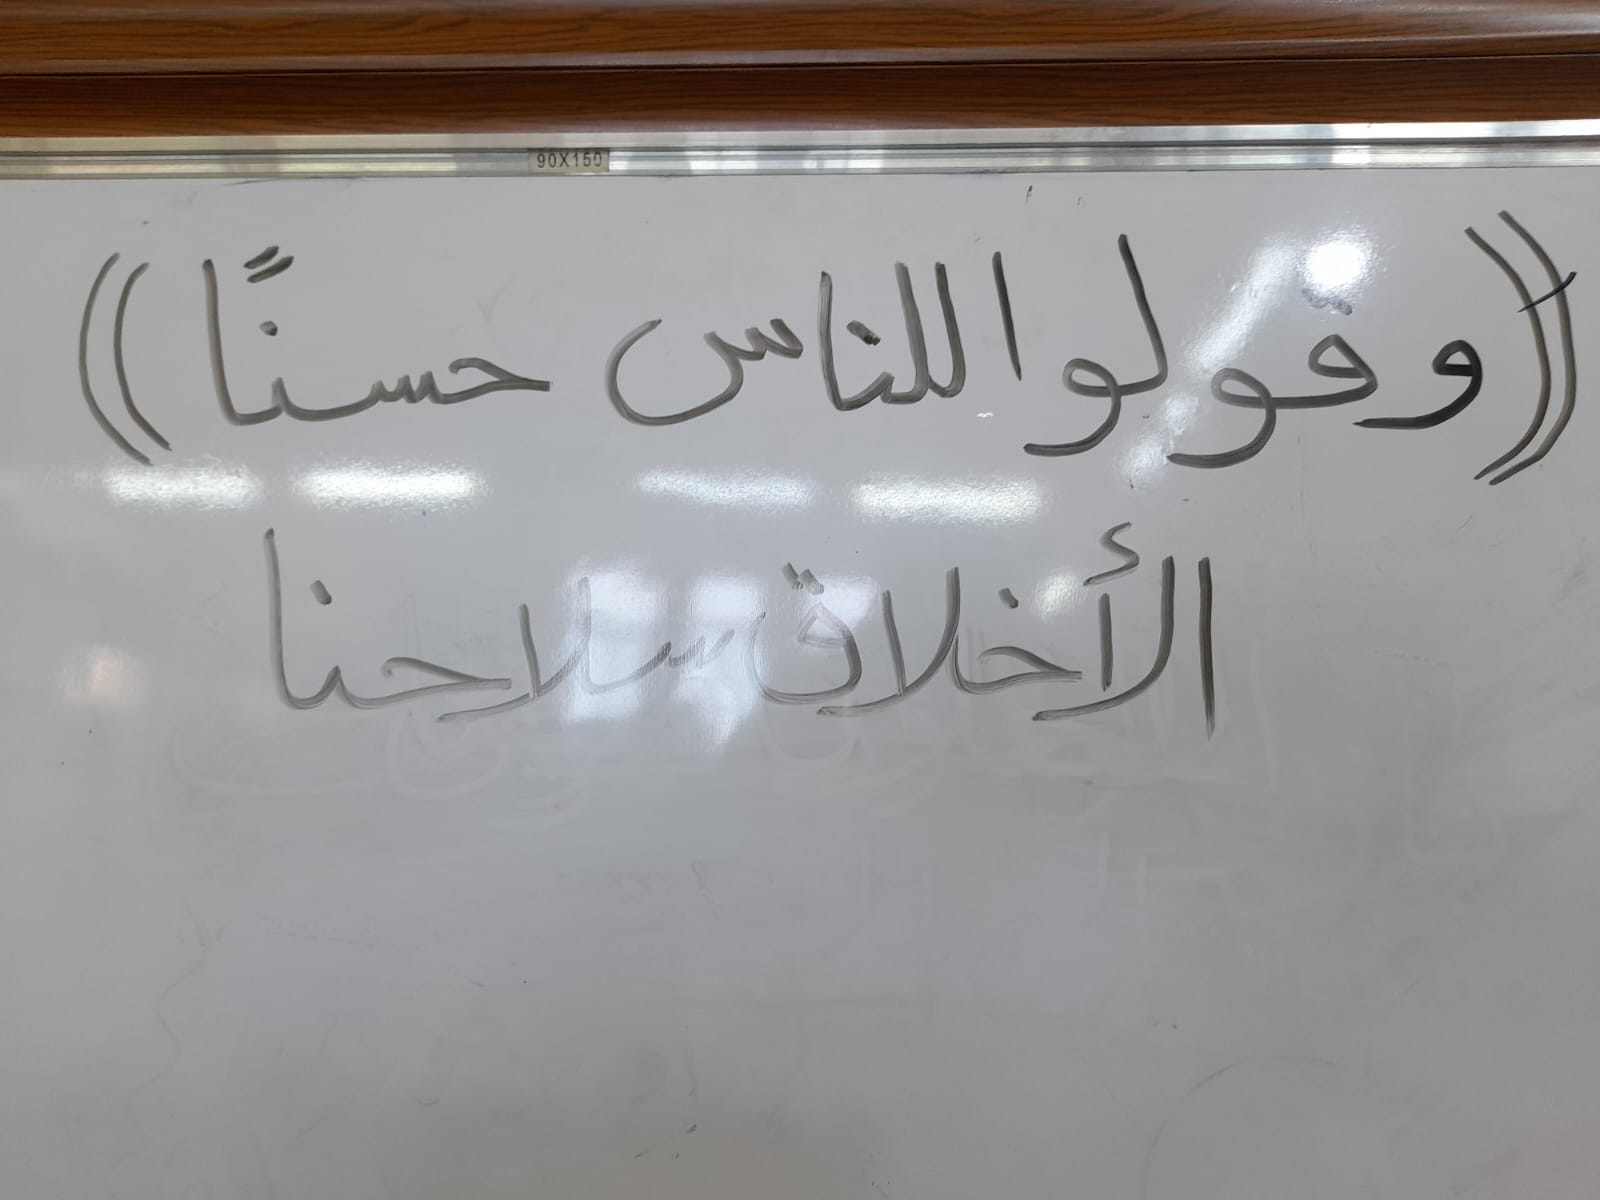 90X150
((وقولوا للناس حسنًا))
الأخلاق سلاحنا